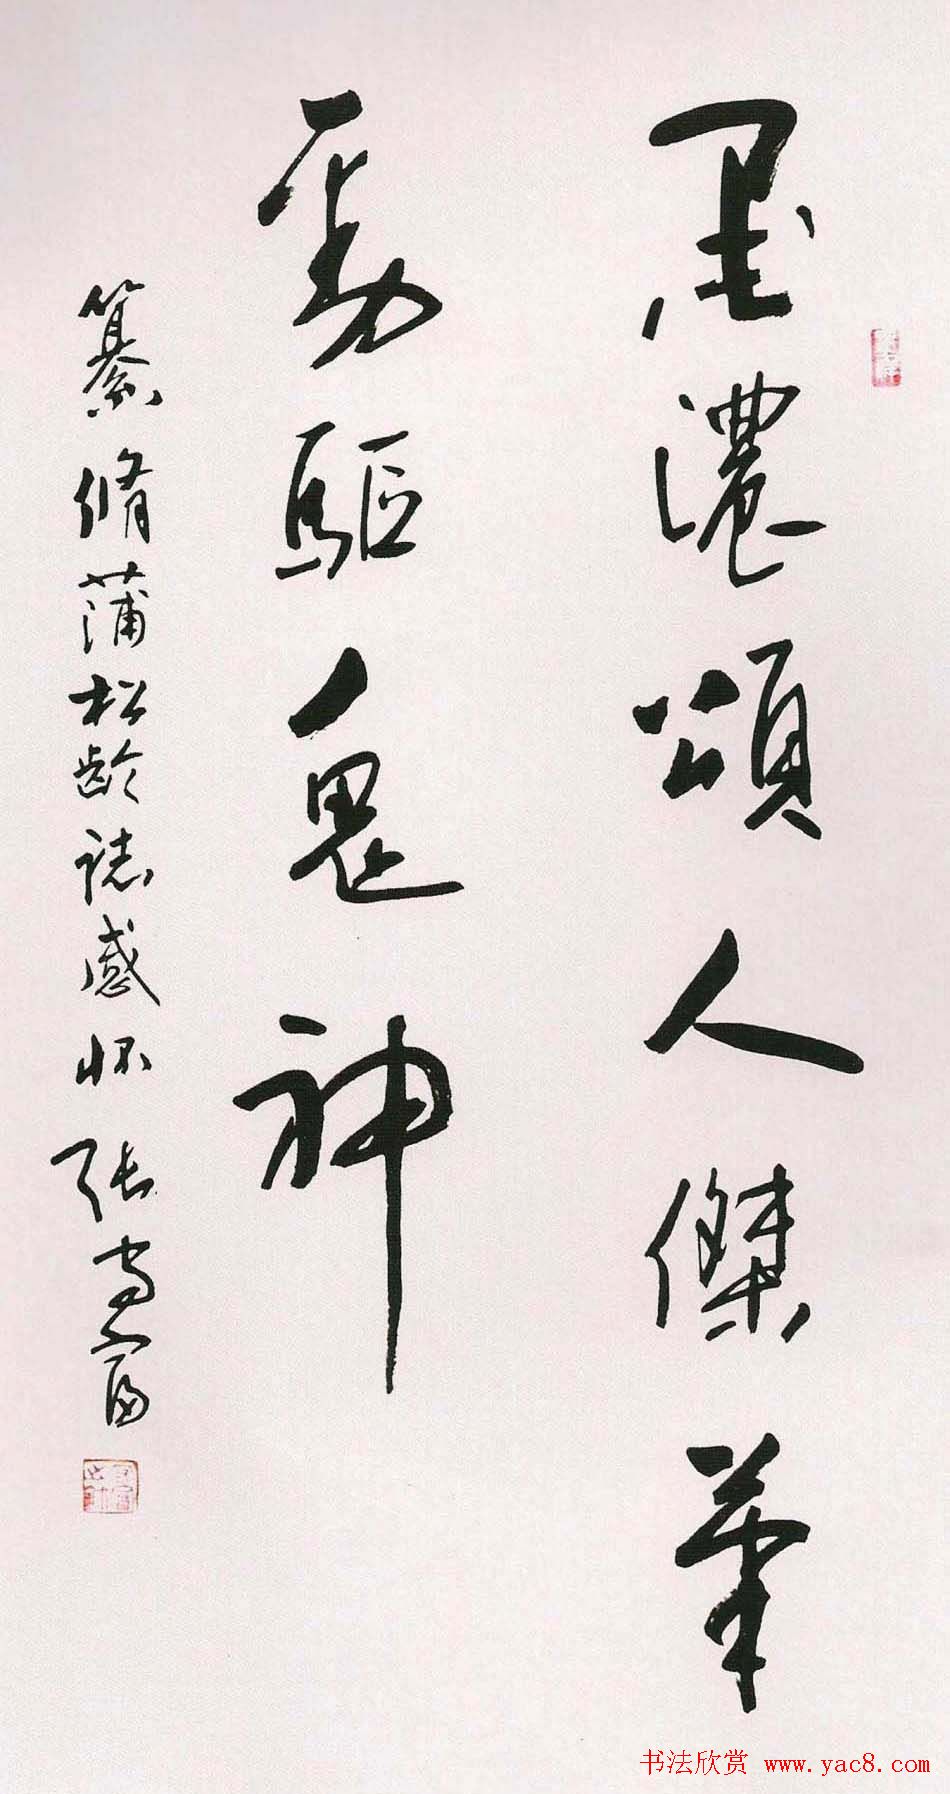 墨濃頌人傑筆
勁驅鬼神
纂脩蒲松龄誌感怀 张富
书法欣赏 www.yac8.com